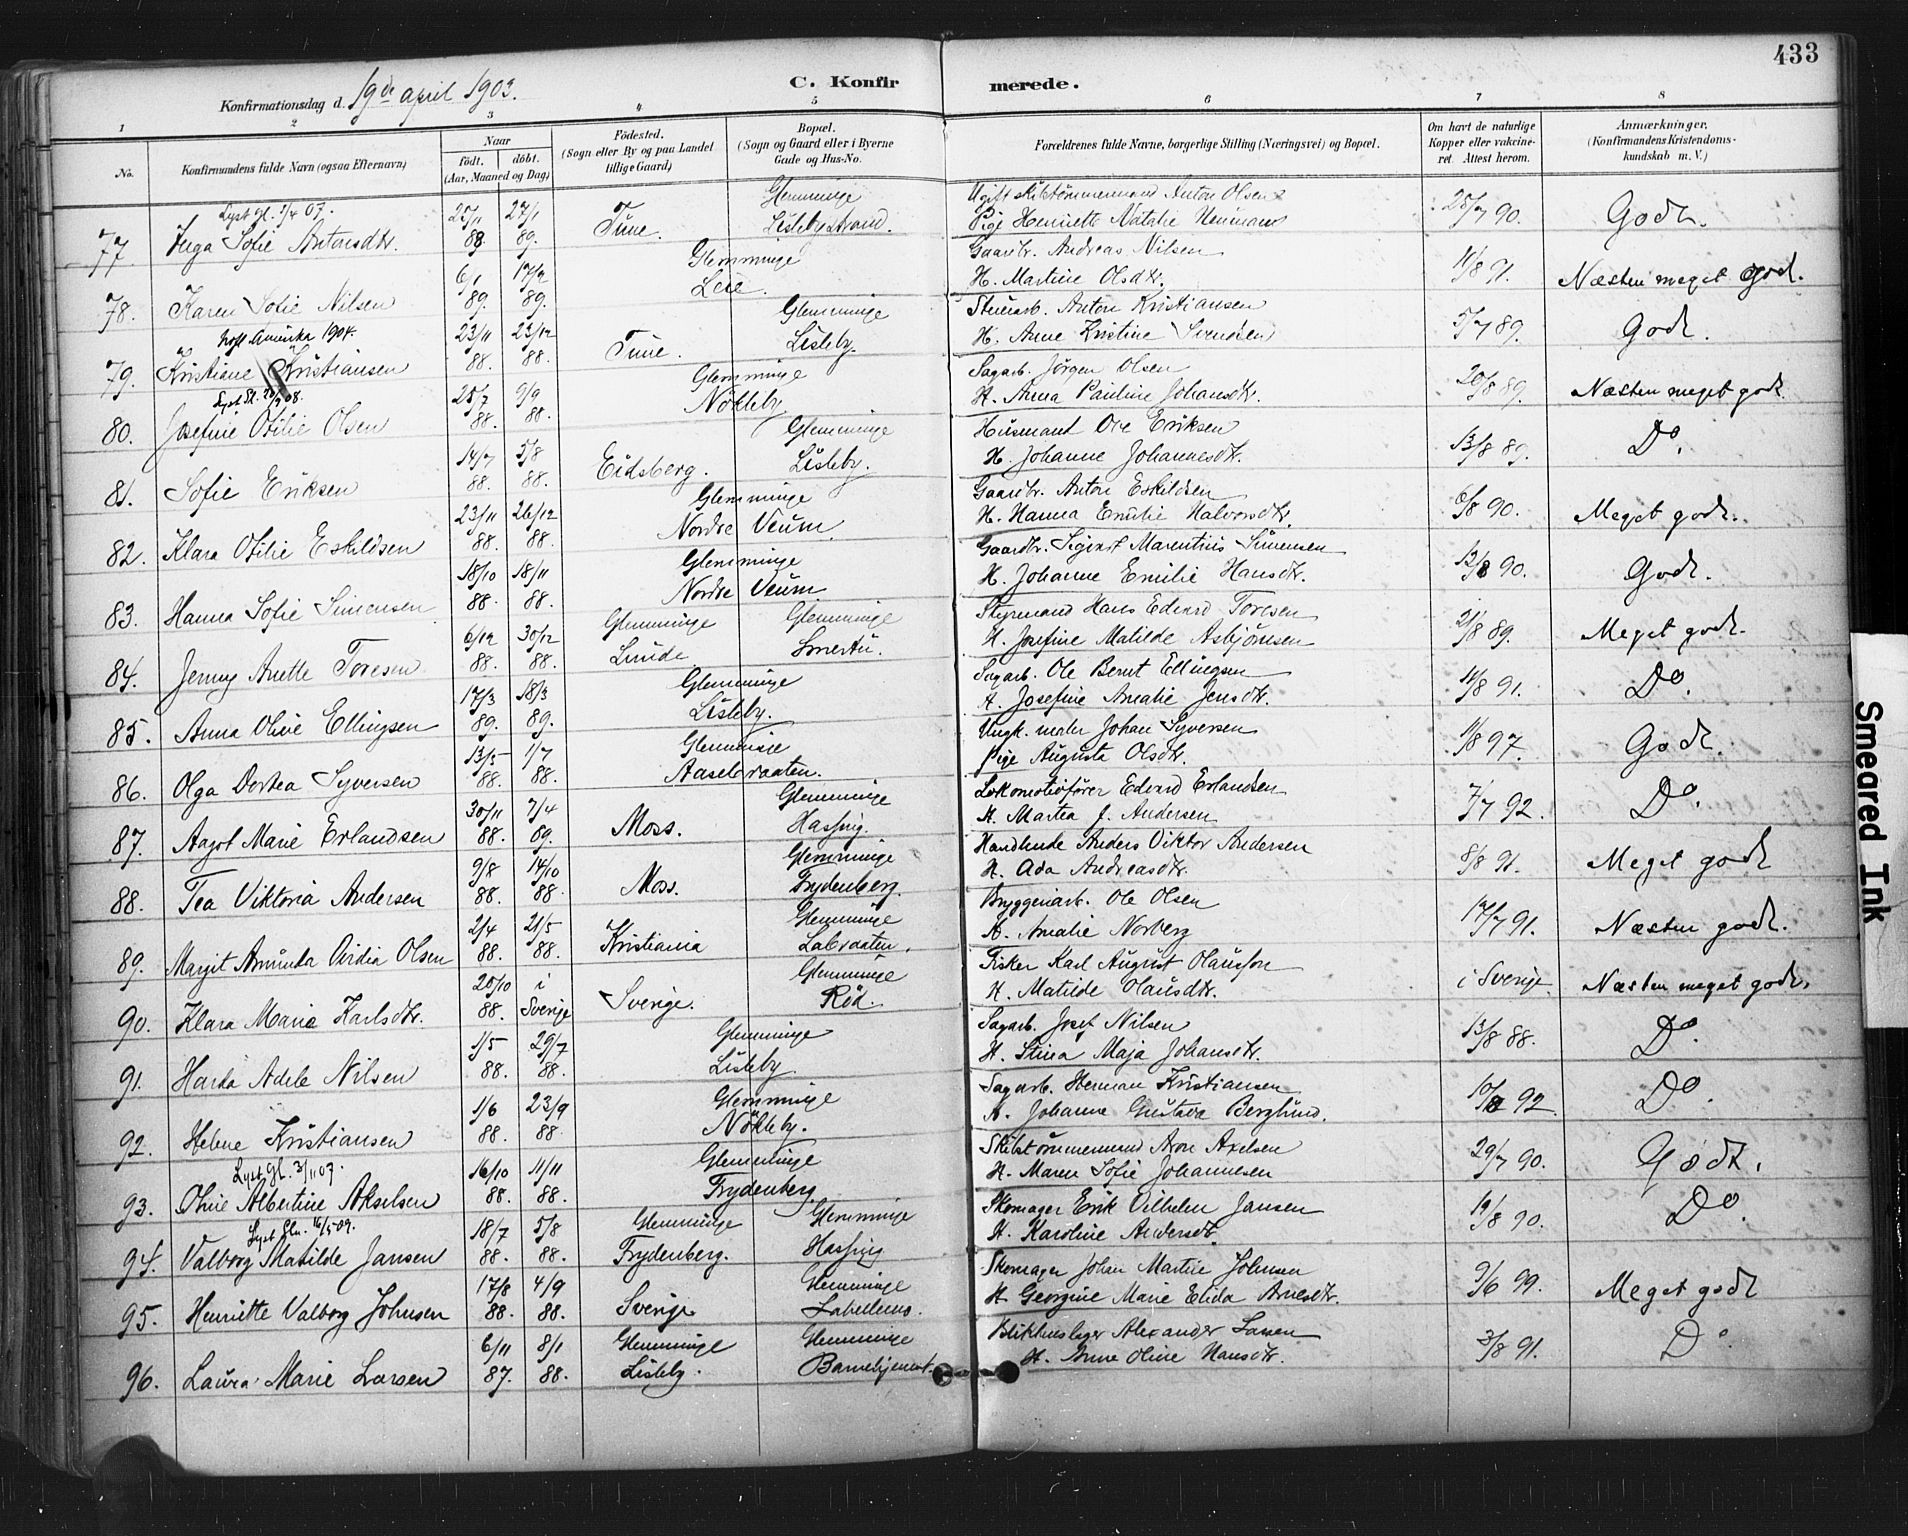 433
Konfirmationsdag d. 19de april 1903.
C. Konfirmerede.
1 2 3 4 5 6 7 8
No.
Konfirmandens fulde Navn (ogsaa Efternavn)
Naar
født. døbt.
(Aar, Maaned og Dag)
Fødested.
(Sogn eller By og paa Landet tillige Gaard)
Bopæl.
(Sogn og Gaard eller i Byerne Gade og Hus-No.
Forældrenes fulde Navne, borgerlige Stilling (Næringsvei) og Bopæl.
Om havt de naturlige Kopper eller vakcineret. Attest herom.
Anmærkninger.
(Konfirmandens Kristendomskundskab m. V.)
Lyst Gl. 1/4 07.
77 Inga Sofie Antonsdtr. 25/11 88 27/1 89. Tune. Glemminge Lislebystrand.
Ugift skibtømmermand Anton Olsen
Pige Henriette Natalie 25/7 90. Godt.
78. Karen Sofie Nilsen 6/1 89. 17/2 89. Glemminge Leie.
Gaardbr. Andreas Nilsen
H. Martine Olsdtr. 11/8 91. Næsten meget god.
Notl Amerika 1904.
79. Kristiane Kristiansen 23/11 88. 23/12 88. Tune. Glemminge Lisleby.
Stuearb. Anton Kristiansen
H. Anne Kristine Svendsen 5/7 89. Godt.
80. Josefine Otilie Olsen 25/7 88. 9/9 88. Glemminge Nökleby
Sagarb. Jörgen Olsen
H. Anna Pauline Johansdtr. 20/8 89. Næsten meget godt
81. Sofie Eriksen 14/7 88. 5/8 88. Eidsberg. Glemminge Lisleby.
Husmand Ove Eriksen
H. Johanne Johannesdtr. 13/8 89. Do.
82. Klara Otilie Eskildsen 23/11 88. 26/12 88. Glemminge Nordre Veum.
Gaardbr. Anton Eskildsen
H. Hanna Emilie Halvorsdtr. 6/8 90. Meget godt.
83. Hanna Sofie Simensen 18/10 88. 18/11 88. Glemminge Nordre Veum
Gaardbr. Sigvart Marentius Simensen
H. Johanne Emilie Hansdtr. 13/8 90. Godt.
84. Jenny Anette Toresen 6/12 88. 30/12 88. Glemminge Lunde Glemminge Smertu.
Styrmand Hans Edvard Toresen
H. Josefine Matilde Asbjörnsen 21/8 89. Meget godt.
85. Anna Olivie Ellingsen 17/3 89. 18/3 89. Glemminge Lisleby.
Sagarb. Ole Bernt Ellingsen
H. Josefine Amalie Jensdtr. 11/8 91. Do.
86. Olga Dortea Syversen 13/5 88. 1/7 88. Glemminge Aasebraaten.
Ungk. maler Johan Syversen
Pige Augusta Olsdtr. 11/8 97. Godt.
87. Aagot Marie Erlandsen 30/11 88. 7/4 89. Moss. Glemminge Hassing.
Lokomotivfører Edvard Erlandsen
H. Martea J. Andersen 7/7 92. Do.
88. Tea Viktoria Andersen 9/8 88. 14/10 88. Moss. Glemminge Frydenberg.
Handlende Anders Viktor Andersen
H. Ada Andreasdtr. 8/8 91. Meget godt
89. Margit Amunda Ovidia Olsen 2/4 88. 21/5 88. Kristiania Glemminge Labraaten.
Bryggeriarb. Ole Olsen
H. Amalie Norberg 17/7 91. Næsten godt.
90. Klara Marie Karlsdtr. 20/10 88. i Sverige Sverige. Glemminge Röd.
Fisker Karl August Olausson
H. Matilde Olausdtr. i Sverige. Næsten meget godt.
91. Harda Adele Nilsen 1/5 88. 29/7 88. Glemminge Lisleby.
Sagarb. Josef Nilsen
H. Stina Maja Johansdtr. 13/8 88. Do.
92. Helene Kristiansen 1/6 88. 23/9 88. Glemminge Nökleby.
Sagarb. Herman Kristiansen
H. Johanne Gustava Berglund. 10/8 92. Do.
Lyst Gl. 3/11 07.
93. Olivie Albertine Akselsen 16/10 88. 11/11 88. Glemminge Frydenberg
Skibstömmermand Aron Axelsen
H. Maren Sofie Johannesen 29/7 90. Godt.
Lyst Glm. 16/5 09.
94. Valborg Matilde Jansen 18/7 88. 5/8 88. Glemminge Frydenberg. Glemminge Hassing
Skomager Erik Vilhelm Jansen
H. Karoline Andersdt. 19/8 90. Do.
95. Henriette Valborg Johnsen 17/8 88. 4/9 88. Sverige Glemminge
Skomager Johan Martin Johnsen
H. Georgine Marie Elida Arnesdtr. 9/6 99. Meget godt
96. Laura Marie Larsen 6/11 87. 8/1 88. Glemminge Lisleby. Glemminge Barnehjemmet.
Blikkenslager Alexander Larsen
H. Anne Oline Hansdtr. 3/8 91. Do
Smeared Ink